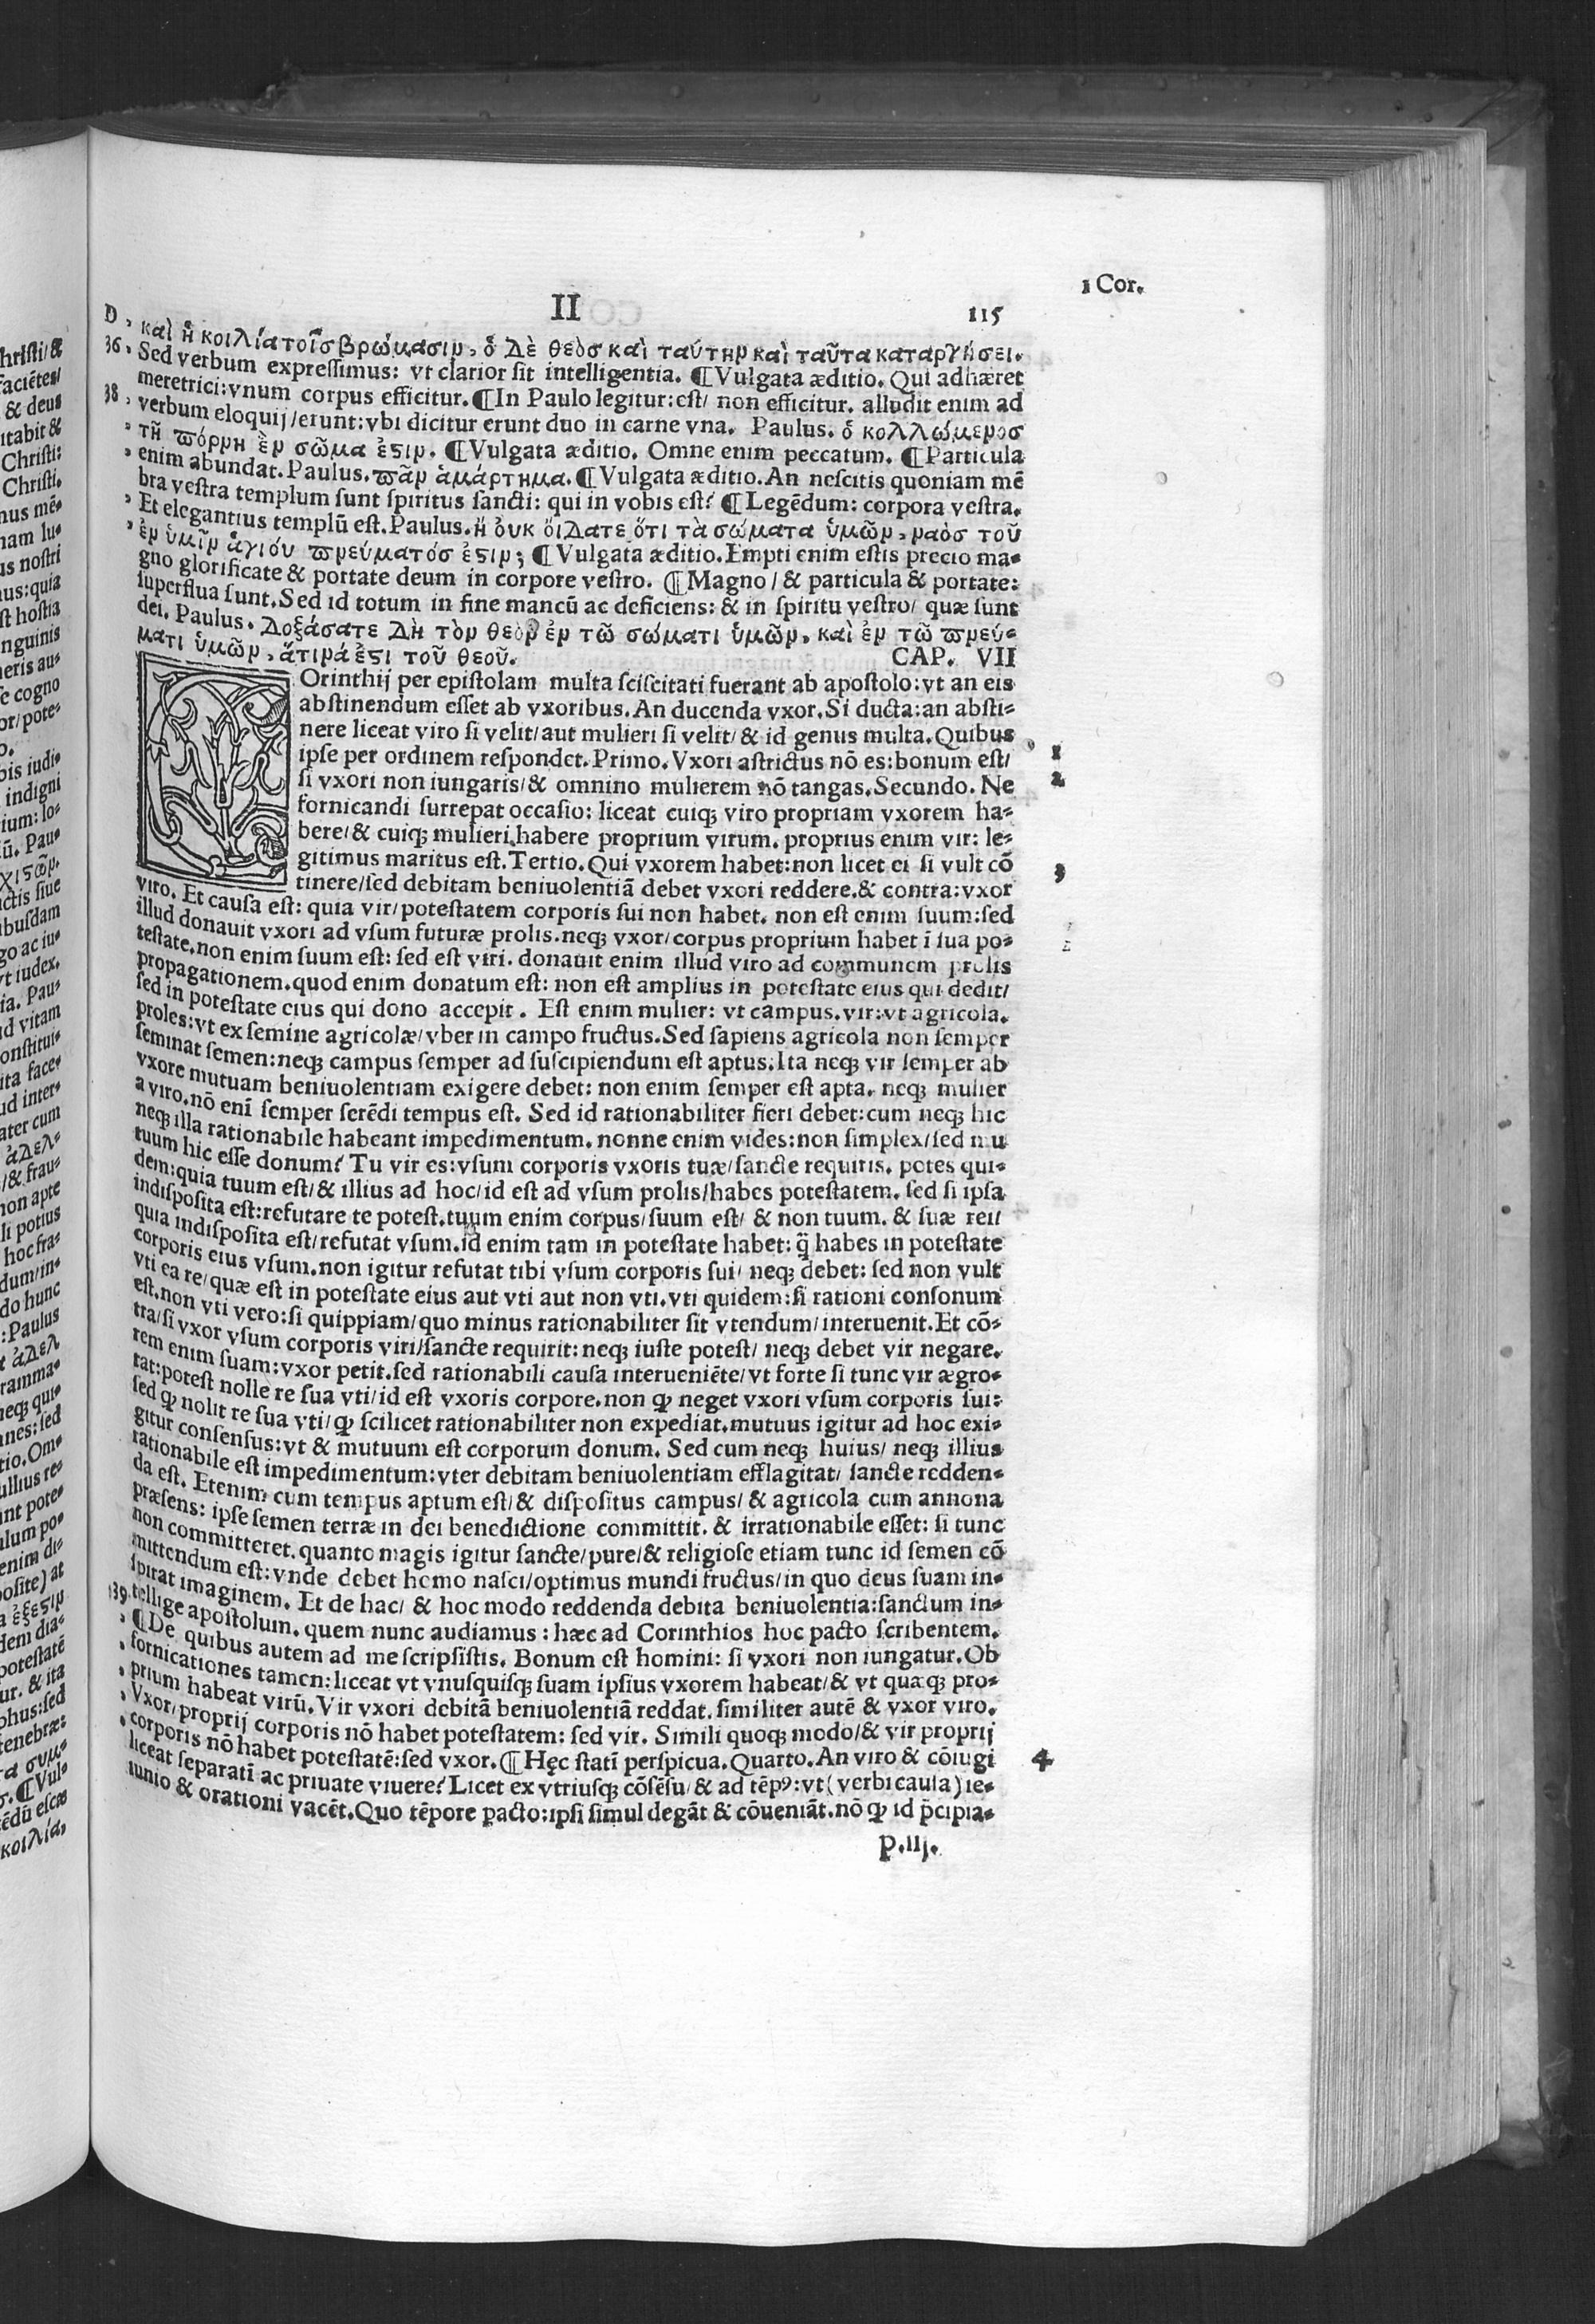 1 Cor.
II
115
D , καὶ ἡ κοιλία τοῖσ βρώμασιν, ὁ δὲ θεὸσ καὶ ταύτην καὶ ταῦτα καταργήσει.
36, Sed verbum expreſſimus: vt clarior ſit intelligentia. ¶Vulgata æditio. Qui adhæret
meretrici:vnum corpus efficitur.¶In Paulo legitur:eſt/ non efficitur. alludit enim ad
38 , verbum eloquij/erunt:vbi dicitur erunt duo in carne vna. Paulus. ὁ κολλώμενοσ
, τῇ πόρνη ἓν σῶμα ἐϛιν. ¶Vulgata æditio. Omne enim peccatum. ¶Particula
, enim abundat. Paulus. πᾶν ἁμάρτημα.¶Vulgata æditio.An neſcitis quoniam mē
bra veſtra templum ſunt ſpiritus ſancti: qui in vobis eſt? ¶Legēdum: corpora veſtra.
, Et elegantius templū eſt.Paulus.ἢ ὀυκ ὄιδατε ὅτι τὰ σώματα ὑμῶν,ναὸσ τοῦ
, ἐν ὑμῖν ἁγιόυ πνεύματόσ ἐϛιν; ¶Vulgata æditio.Empti enim eſtis precio ma-
gno glorificate & portate deum in corpore veſtro. ¶Magno/ & particula & portate:
ſuperflua ſunt.Sed id totum in fine mancū ac deficiens: & in ſpiritu veſtro/ quæ ſunt
dei. Paulus. δοξάσατε δὴ τὸν θεὸν ἐν τῶ σώματι ὑμῶν, καὶ ἐν τῶ πνεύ-
ματι ὑμῶν,ἅτινά ἐϛι τοῦ θεοῦ.
CAP. VII
Orinthij per epiſtolam multa ſciſcitati fuerant ab apoſtolo:vt an eis
abſtinendum eſſet ab vxoribus.An ducenda vxor.Si ducta:an abſti-
nere liceat viro ſi velit/aut mulieri ſi velit/ & id genus multa.Quibus
ipſe per ordinem reſpondet.Primo.Vxori aſtrictus nō es:bonum eſt/ 1
ſi vxori non iungaris/& omnino mulierem nō tangas.Secundo. Ne 2
fornicandi ſurrepat occaſio: liceat cuiqꝫ viro propriam vxorem ha-
bere/& cuiqꝫ mulieri habere proprium virum. proprius enim vir: le-
gitimus maritus eſt.Tertio.Qui vxorem habet:non licet ei ſi vult cō 3
tinere/ſed debitam beniuolentiā debet vxori reddere.& contra:vxor
viro. Et cauſa eſt: quia vir/poteſtatem corporis ſui non habet. non eſt enim ſuum:ſed
illud donauit vxori ad vſum futuræ prolis.neqꝫ vxor/corpus proprium habet ī ſua po-
teſtate.non enim ſuum eſt: ſed eſt viri. donauit enim illud viro ad communem prolis
propagationem.quod enim donatum eſt: non eſt amplius in poteſtate eius qui dedit/
ſed in poteſtate eius qui dono accepit . Eſt enim mulier: vt campus.vir:vt agricola.
proles:vt ex ſemine agricolæ/vber in campo fructus.Sed ſapiens agricola non ſemper
ſeminat ſemen:neqꝫ campus ſemper ad ſuſcipiendum eſt aptus.Ita neqꝫ vir ſemper ab
vxore mutuam beniuolentiam exigere debet: non enim ſemper eſt apta. neqꝫ mulier
a viro.nō enī ſemper ſerēdi tempus eſt. Sed id rationabiliter fieri debet:cum neqꝫ hic
neqꝫ illa rationabile habeant impedimentum. nonne enim vides:non ſimplex/ſed mu
tuum hic eſſe donum? Tu vir es:vſum corporis vxoris tuæ/ſancte requiris. potes qui-
dem:quia tuum eſt/& illius ad hoc/id eſt ad vſum prolis/habes poteſtatem. ſed ſi ipſa
indiſpoſita eſt:refutare te poteſt.tuum enim corpus/ſuum eſt/ & non tuum. & ſuæ rei/
quia indiſpoſita eſt/refutat vſum.id enim tam in poteſtate habet: q̄ habes in poteſtate
corporis eius vſum.non igitur refutat tibi vſum corporis ſui/ neqꝫ debet: ſed non vult
vti ea re/quæ eſt in poteſtate eius aut vti aut non vti.vti quidem:ſi rationi conſonum
eſt.non vti vero:ſi quippiam/quo minus rationabiliter ſit vtendum/interuenit.Et cō-
tra/ſi vxor vſum corporis viri/ſancte requirit: neqꝫ iuſte poteſt/ neqꝫ debet vir negare.
rem enim ſuam:vxor petit.ſed rationabili cauſa interueniēte/vt forte ſi tunc vir ægro-
tat:poteſt nolle re ſua vti/id eſt vxoris corpore.non ꝙ neget vxori vſum corporis ſui:
ſed ꝙ nolit re ſua vti/ꝙ ſcilicet rationabiliter non expediat.mutuus igitur ad hoc exi-
gitur conſenſus:vt & mutuum eſt corporum donum. Sed cum neqꝫ huius/ neqꝫ illius
rationabile eſt impedimentum:vter debitam beniuolentiam efflagitat/ ſancte redden-
da eſt. Etenim cum tempus aptum eſt/& diſpoſitus campus/ & agricola cum annona
præſens: ipſe ſemen terræ in dei benedictione committit. & irrationabile eſſet: ſi tunc
non committeret.quanto magis igitur ſancte/pure/& religioſe etiam tunc id ſemen cō
mittendum eſt:vnde debet homo naſci/optimus mundi fructus/in quo deus ſuam in-
ſpirat imaginem. Et de hac/ & hoc modo reddenda debita beniuolentia:ſanctum in-
39.tellige apoſtolum.quem nunc audiamus : hæc ad Corinthios hoc pacto ſcribentem.
, ¶De quibus autem ad me ſcripſiſtis. Bonum eſt homini: ſi vxori non iungatur.Ob
, fornicationes tamen:liceat vt vnuſquiſqꝫ ſuam ipſius vxorem habeat/& vt quæqꝫ pro-
, prium habeat virū.Vir vxori debitā beniuolentiā reddat.ſimiliter autē & vxor viro.
, Vxor/proprij corporis nō habet poteſtatem: ſed vir. Simili quoqꝫ modo/& vir proprij
, corporis nō habet poteſtatē:ſed vxor.¶Hęc ſtatī perſpicua.Quarto.An viro & cōiugi 4
liceat ſeparatī ac priuate viuere? Licet ex vtriuſqꝫ cōſēſu/& ad tēpꝰ:vt(verbi cauſa)ie-
iunio & orationi vacēt.Quo tēpore pacto:ipſi ſimul degāt & cōueniāt.nō ꝙ id p̄cipia-
p.iij.